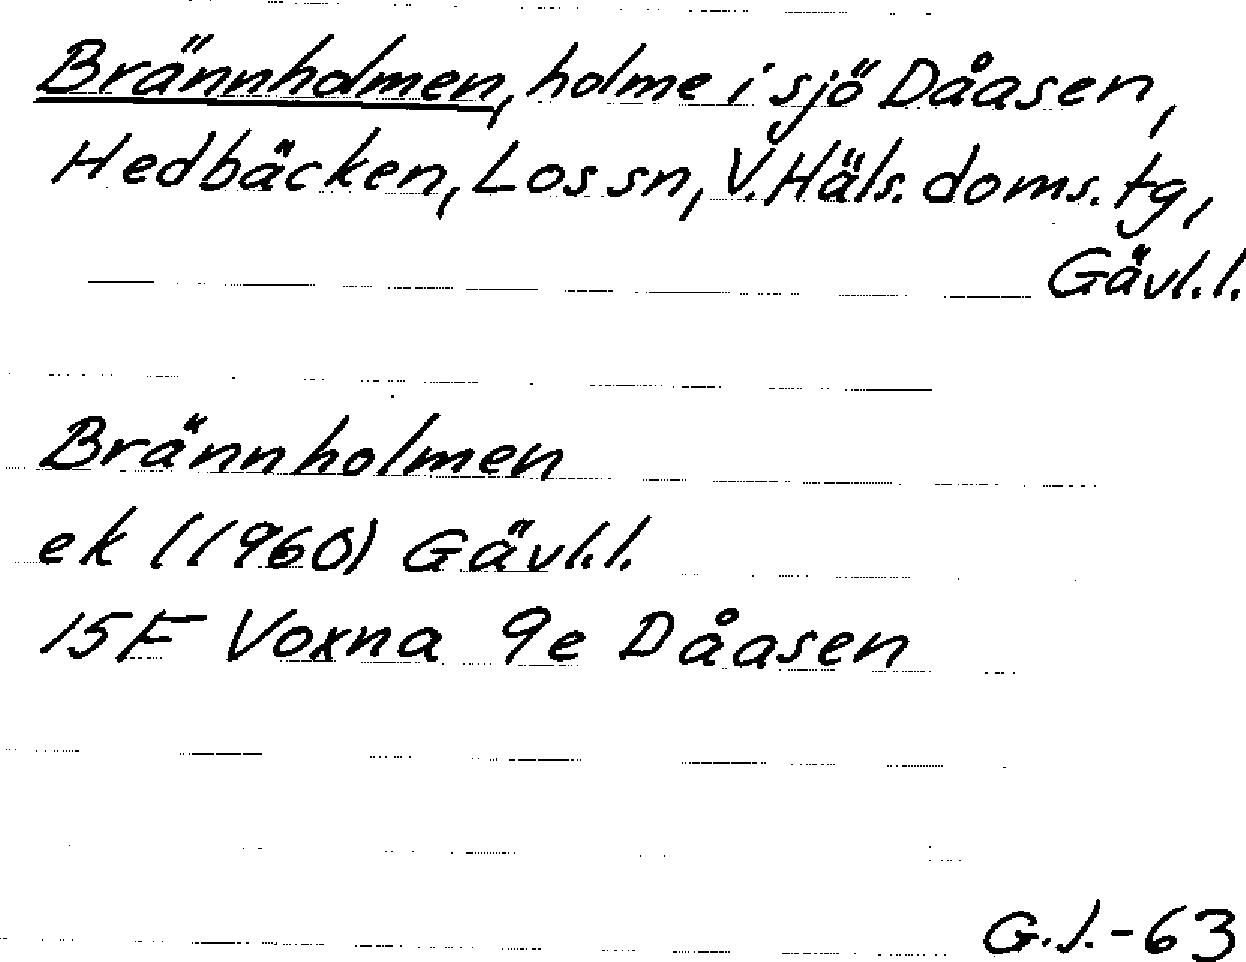 Brännholmen, holme i sjö Dåasen,
Hedbäcken, Los sn, V. Häls. doms. tg,
Gävl.l.
Brännholmen
ek (1960) Gävl.l.
15F Voxna 9e Dåasen
G.J.-63